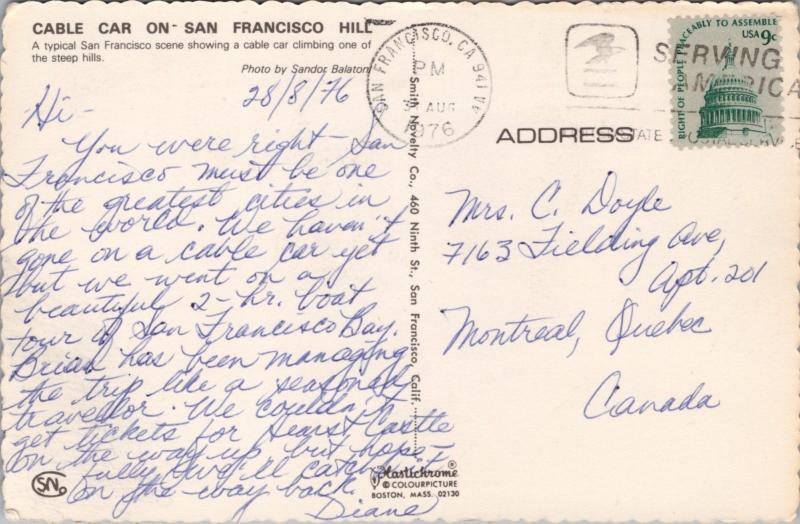 CABLE CAR ON - SAN FRANCISCO HILL
A typical San Francisco scene showing a cable car climbing one of
the steep hills.
Photo by Sandor Balatoni
28/8/76
Hi -
You were right - San
Francisco must be one
of the greatest cities in
the world. We haven't
gone on a cable car yet
but we went on a
beautiful 2-hr. boat
tour of San Francisco Bay.
Brian has been managing
the trip like a seasoned
travellor. We couldn't
get tickets for Hearst Castle
on the way up but hope-
fully we'll catch it
on the way back.
Diane
SN
Smith Novelty Co., 460 Ninth St., San Francisco, Calif.
Plastichrome®
© COLOURPICTURE
BOSTON, MASS. 02130
SAN FRANCISCO, CA 941
PM
31 AUG
1976
SERVING
AMERICA
RIGHT OF PEOPLE PEACEABLY TO ASSEMBLE
USA 9c
ADDRESS
Mrs. C. Doyle
7163 Fielding Ave,
Apt. 201
Montreal, Quebec
Canada